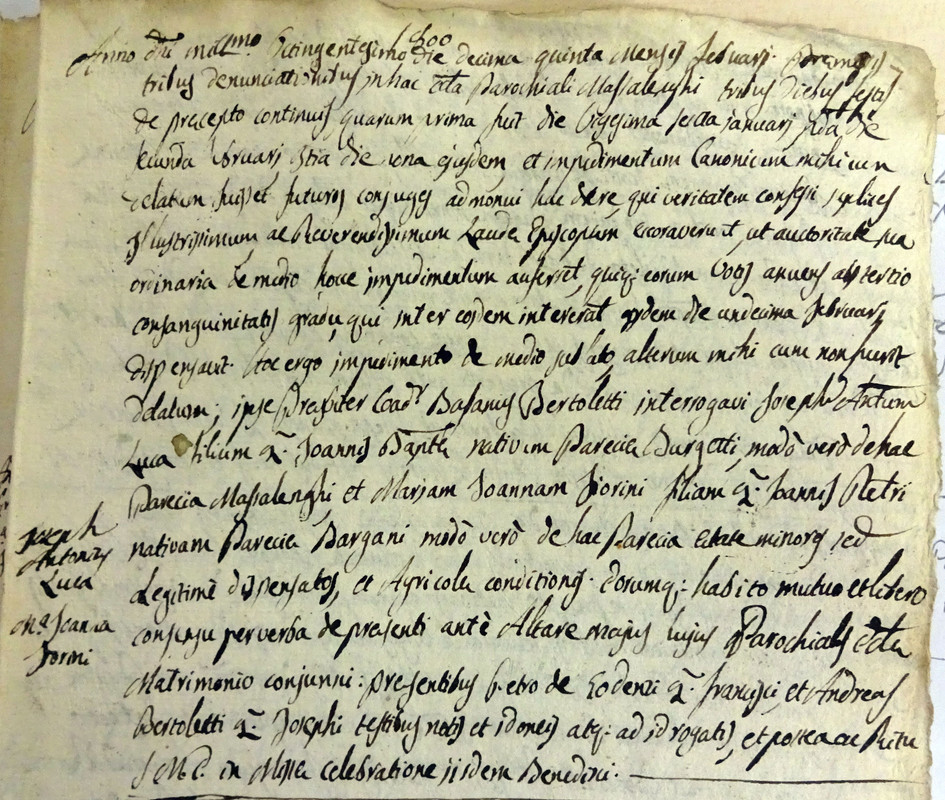 Anno Dni mill.mo Octingentesimo 1800 die decima quinta Mensis Febuarj Premissis
tribus denunciationibus in hac Parochiali Massalenghi tribus diebus festis
de precepto continuis quarum prima fuit die Vigesima sexta januarj die
secunda Februarj die nona ejusdem et impedimentum Canonicum mihi cum
delatum fuisset futuros conjuges admonui hac de re, qui veritatem confessi suplices
Illustrissimum ac Reverendissimum Lauden Episcopum exoraverunt, ut auctoritate sua
ordinaria de medio hocce impedimentum auferret, quiq; eorum Votis anuens ab tertio
consanguinitatis gradu, qui inter eosdem intererat die undecima Februarj
dispensavit. Hoc ergo impedimento de medio sublato, alterum mihi cum non fuerit
delatum; ipse Presbiter Coad.r Basanus Bertoletti interrogavi Joseph Antum
Luca filium q. Joannis Bapte nativum Parecie Burgetti, modò verò de hac
Parecia Massalenghi, et Mariam Joannam Fiorini filiam q. Joannis Petri
nativam Parecie Bargani modò verò de hac Parecia etate minores, sed
Legitimè dispensatos, et Agricole conditionis. Eorumq; habito mutuo et libero
consensu per verba de presenti antè Altare majus hujus Parochialis
Matrimonio conjunxi: presentibus Petro de q. Francisci, et Andreas
Bertoletti q. Josephi testibus notis et idoneis atq; ad id rogatis, et postea ex Ritu
S.M.E. in Misse celebratione iisdem Benedixi.
Joseph
Antonius
Luca
M.a Joanna
Fiorini